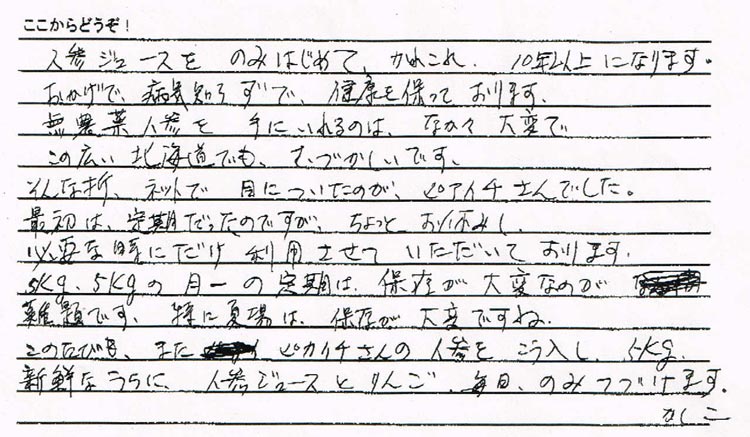 ここからどうぞ!
人参ジュースを のみはじめて、かれこれ、10年以上になります。
おかげで、病気知らずで、健康を保って おります。
無農薬人参を 手にいれるのは、なかなか大変で
この広い 北海道でも、むづかしいです。
そんな折、ネットで 目についたのが、ピアイチさんでした。
最初は、定期だったのですが、ちょっと お休みし、
必要な時にだけ 利用させて いただいて おります。
5Kg、5Kgの 月一の 定期は、保存が 大変なのが
難題です、特に夏場は、保存が 大変ですね。
このたびも、また ピカイチさんの 人参を こう入し、5Kg、
新鮮なうちに、人参ジュースとりんご、毎日、のみつづけます。
かしこ